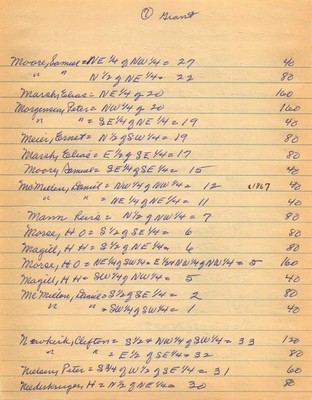 (2) Grant
Moore, Samuel = NE 1/4 of NW 1/4 = 27 40
" " N 1/2 of NE 1/4 = 22 80
Marsh, Elias = NE 1/4 of 20 160
Morgensen, Peter = NW 1/4 of 20 160
" " = SE 1/4 of NE 1/4 = 19 40
Meier, Ernest = N 1/2 of SW 1/4 = 19 80
Marsh, Elias = E 1/2 of SE 1/4 = 17 80
Moore, Samuel = SE 1/4 of SE 1/4 = 15 40
McMillen, Daniel = NW 1/4 of NW 1/4 = 12 1867 40
" " = NE 1/4 of NE 1/4 = 11 40
Mann = N 1/2 of NW 1/4 = 7 80
Morse, H O = S 1/2 of SE 1/4 = 6 80
Magill, H H = S 1/2 of NE 1/4 = 6 80
Morse, H O = NE 1/4 of SW 1/4 = E 1/2 + NW 1/4 of NW 1/4 = 5 160
Magill, H H = SW 1/4 of NW 1/4 = 5 40
McMillen, Daniel = S 1/2 of SE 1/4 = 2 80
" " = SW 1/4 of SW 1/4 = 1 40
Newkirk, Clifton = S 1/2 + NW 1/4 of SW 1/4 = 33 120
" " = E 1/2 of SE 1/4 = 32 80
Nielsen, Peter = of W 1/2 of SE 1/4 = 31 60
Niederkruger, H = N 1/2 of NE 1/4 = 30 80